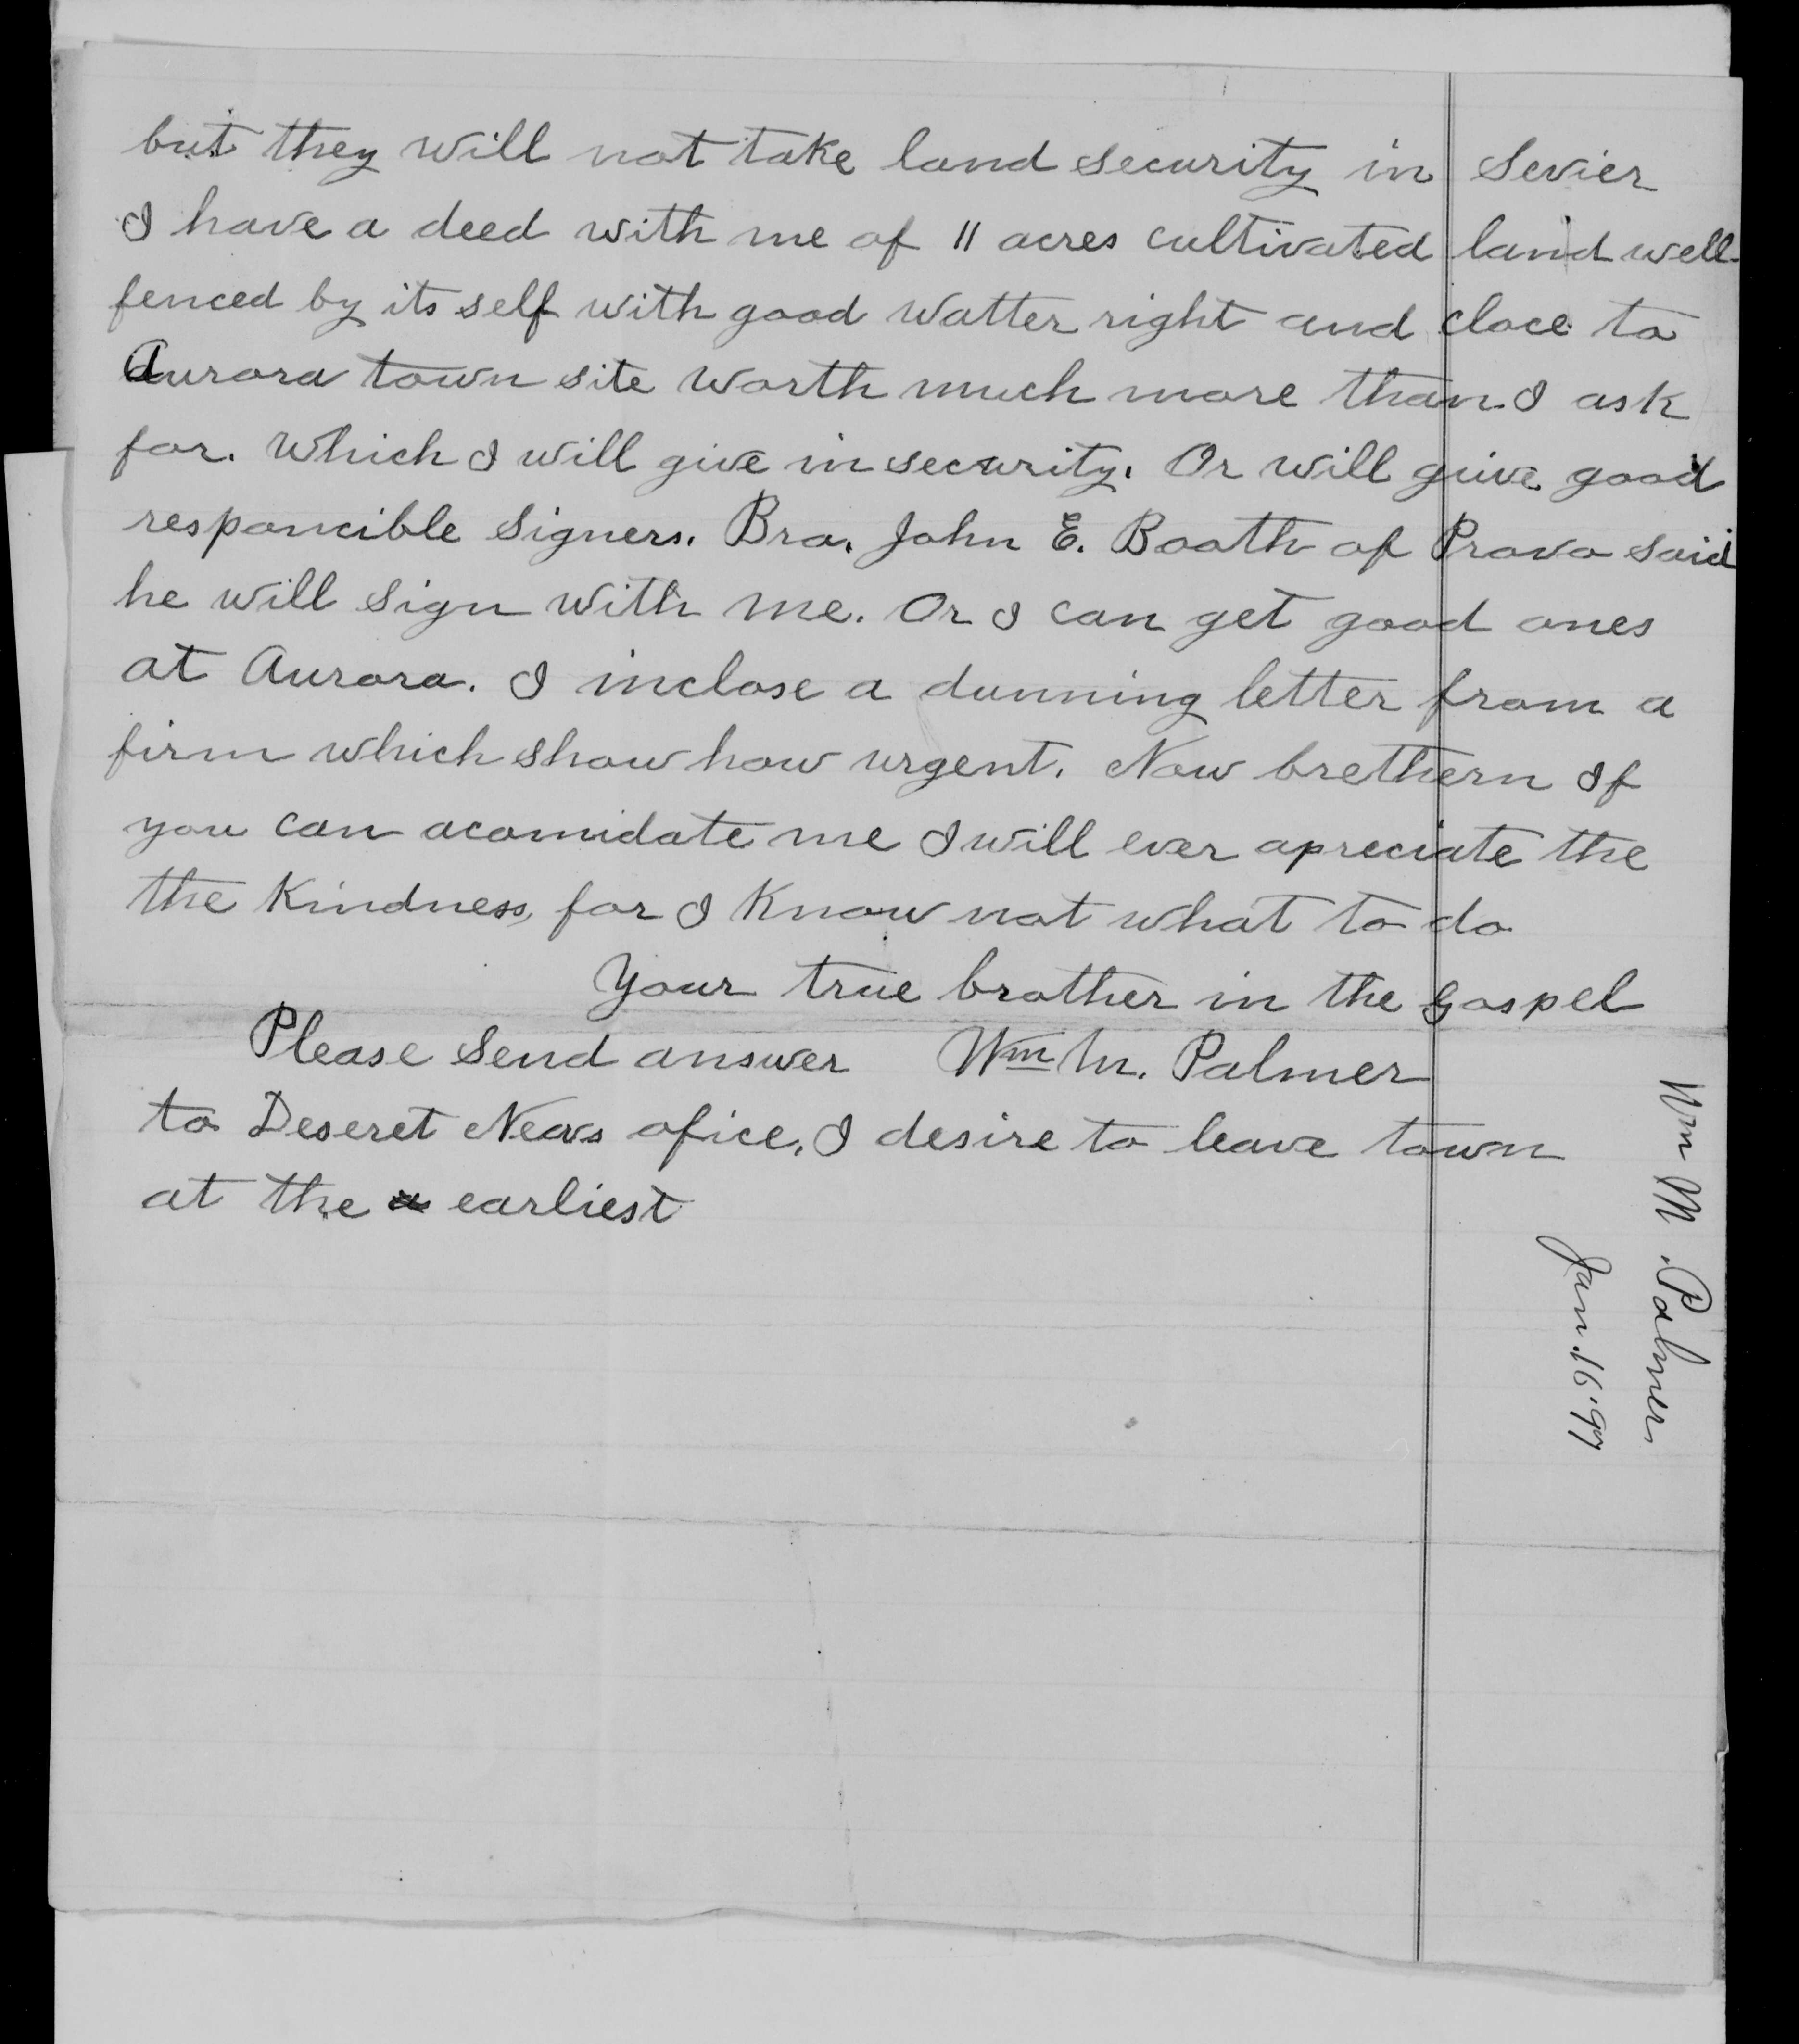 but they will not take land security in Sevier
I have a deed with me of 11 acres cultivated land well
fenced by its self with good watter right and close to
Aurora town site worth much more than I ask
for. Which I will give in security. Or will give good
responcible signers. Bro. John E. Booth of Provo said
he will sign with me. Or I can get good ones
at Aurora. I inclose a dunning letter from a
firm which show how urgent. Now brethern If
you can acomidate me I will ever apreciate the
the Kindness, for I Know not what to do
Your true brother in the Gospel
Please send answer Wm M. Palmer
to Deseret News ofice, I desire to leave town
at the earliest
Wm M. Palmer
Jan. 16. '97